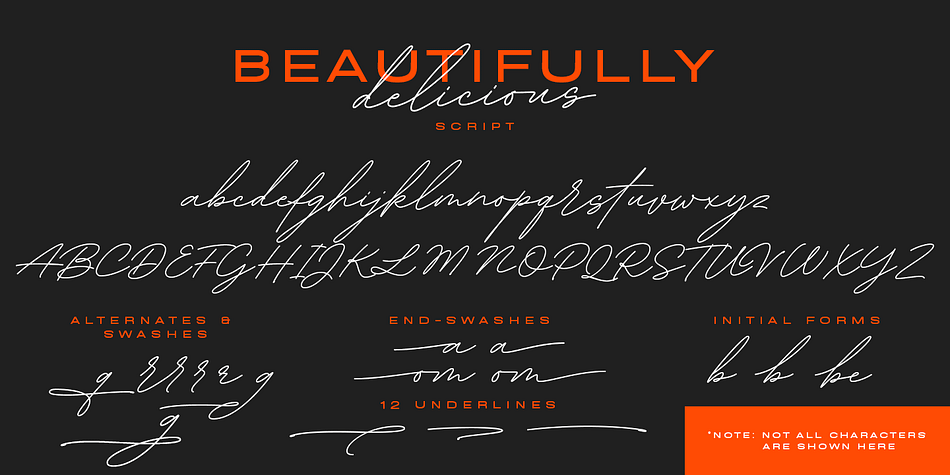 BEAUTIFULLY
delicious
SCRIPT
abcdefghijklmnopqrstuvwxyz
ABCDEFGHIJKLMNOPQRSTUVWXYZ
ALTERNATES &
SWASHES
END-SWASHES
INITIAL FORMS
g r r r r g
g
a a
om om
b b be
12 UNDERLINES
*NOTE: NOT ALL CHARACTERS
ARE SHOWN HERE